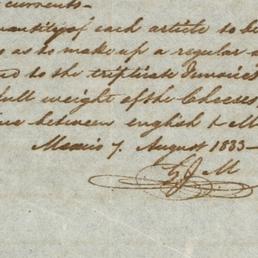 currents-
quantity of each article to be
as to make up a regular
to the triplicate Invoice
full weight of the Cheeses,
between english & M
7. August 1833-
G J M